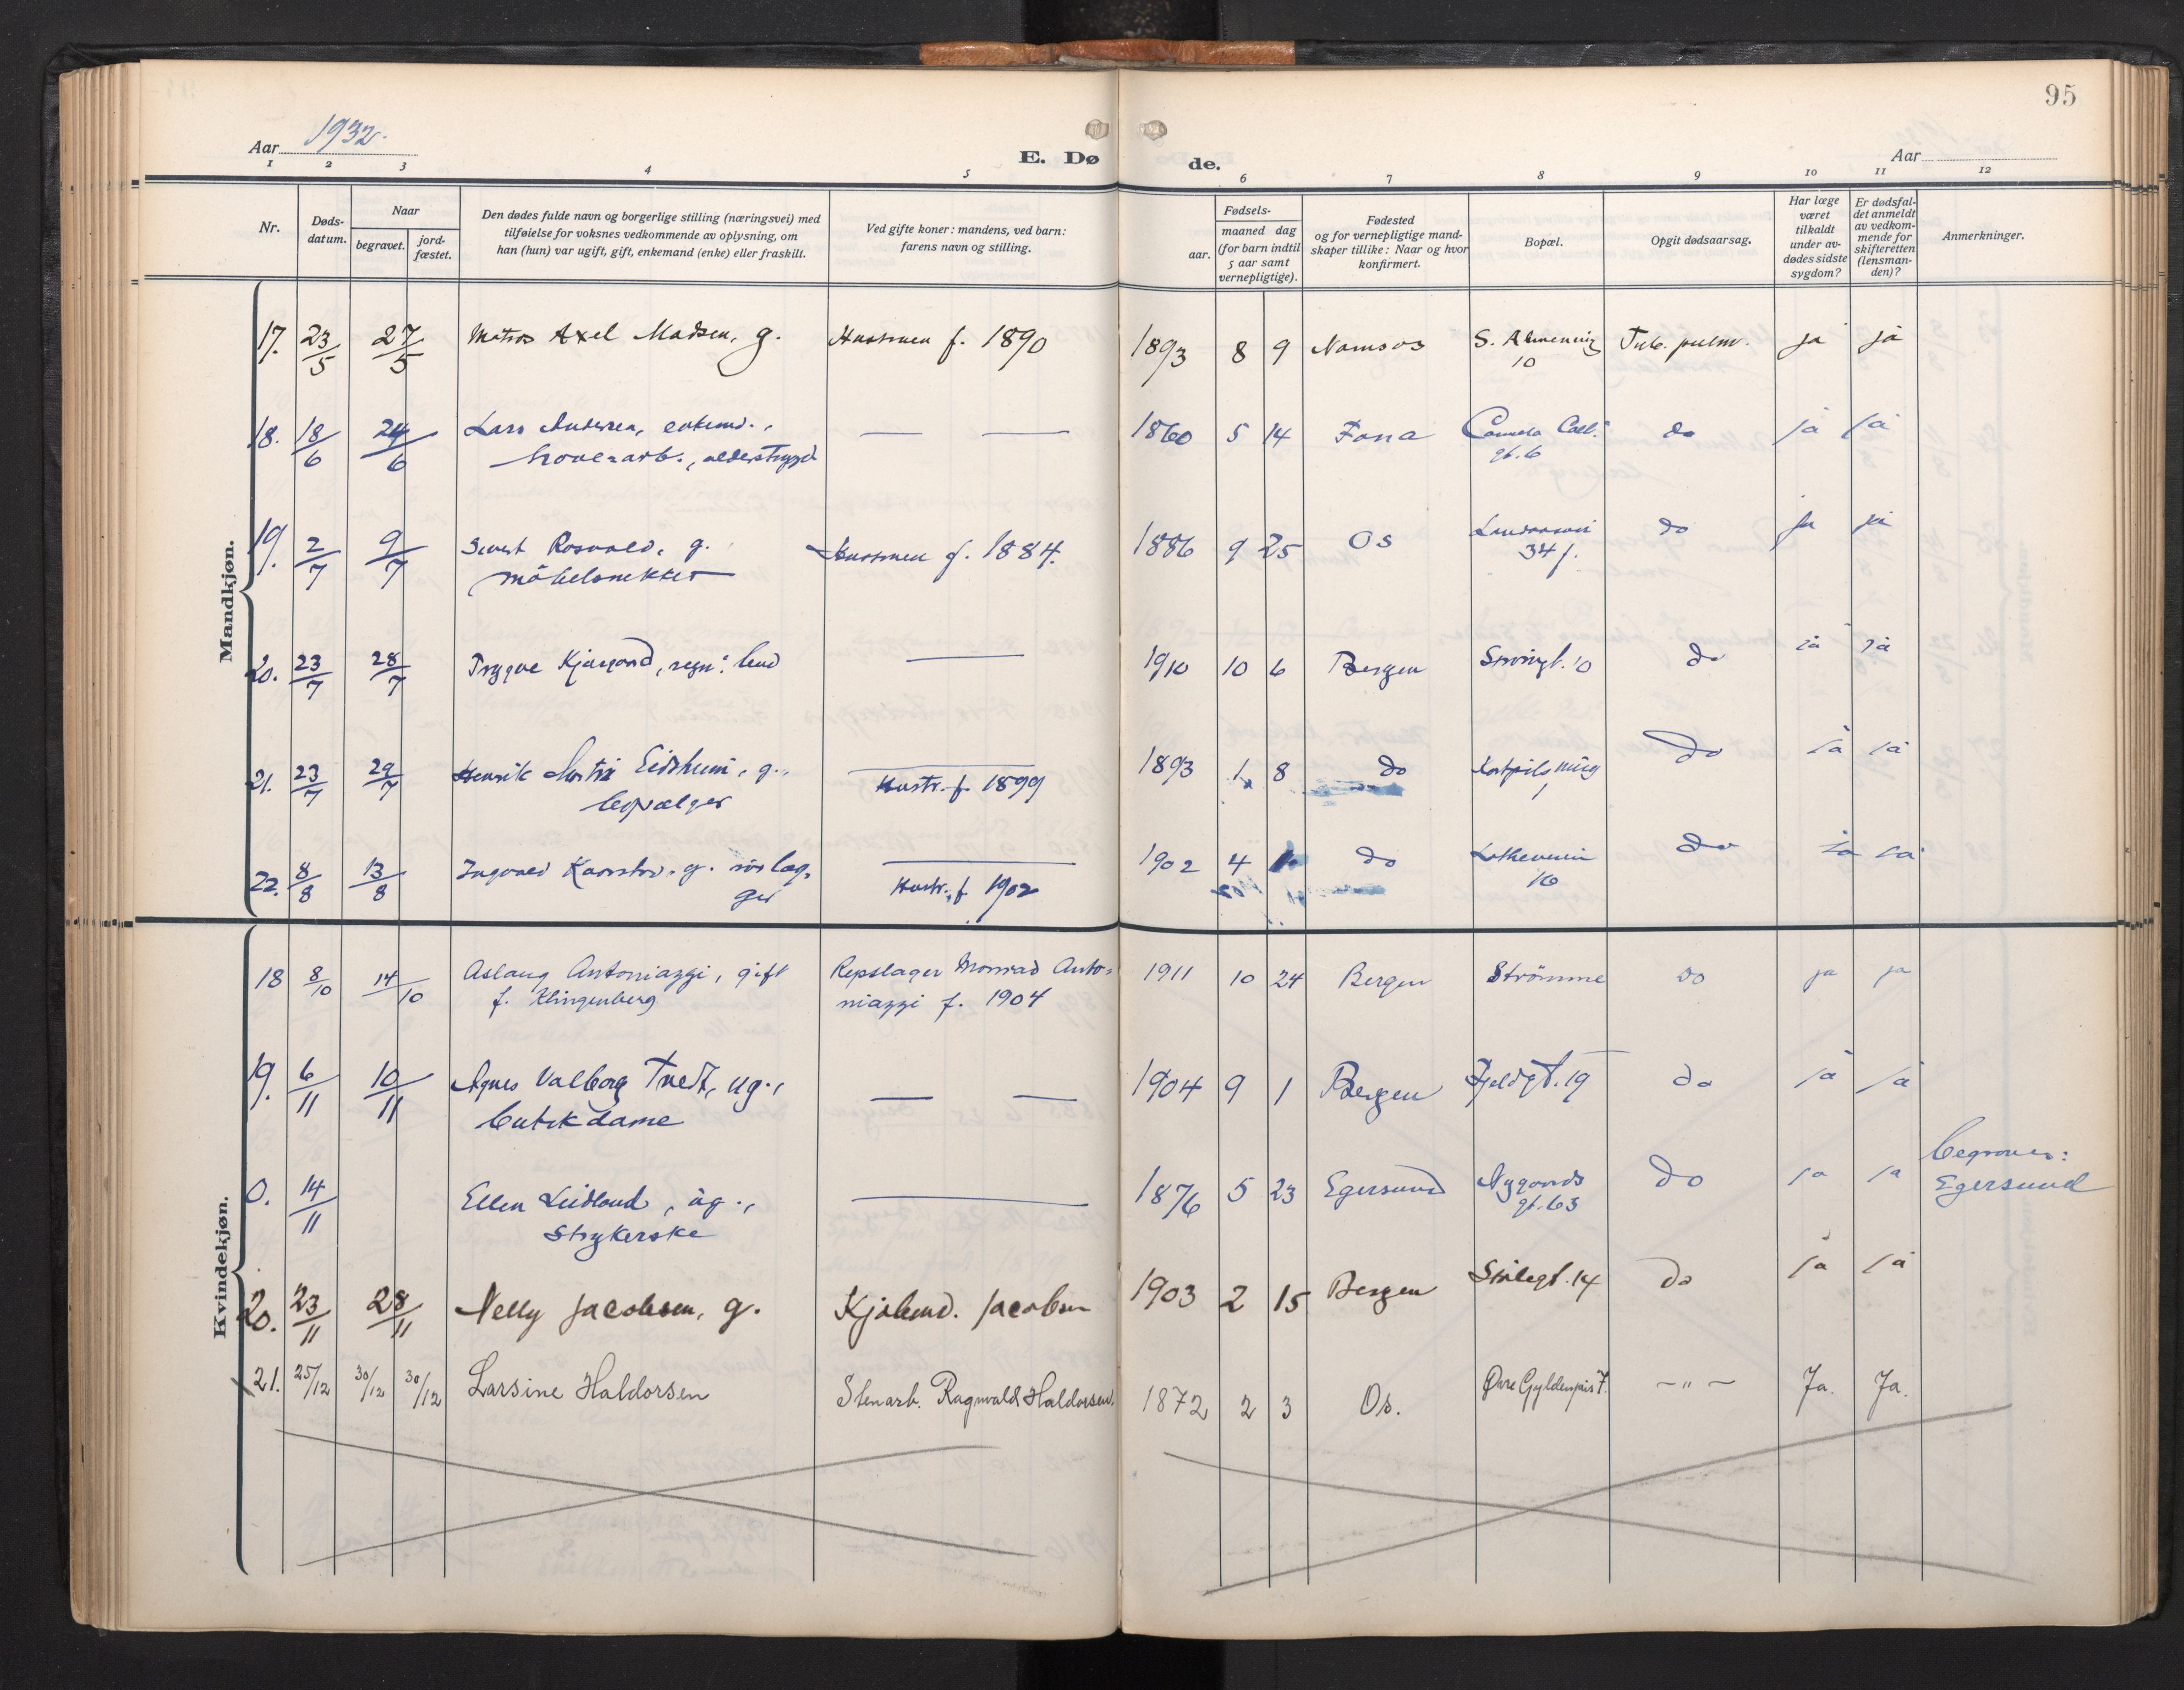 95
Aar 1932.
Aar
E. Dø de.
1 2 3 4 5 6 7 8 9 10 11 12
Nr.
Døds-
datum.
Naar
begravet.
jord-
fæstet.
Den dødes fulde navn og borgerlige stilling (næringsvei) med
tilføielse for voksnes vedkommende av oplysning, om
han (hun) var ugift, gift, enkemand (enke) eller fraskilt.
Ved gifte koner: mandens, ved barn:
farens navn og stilling.
Fødsels-
aar.
maaned dag
(for barn indtil
5 aar samt
vernepligtige).
Fødested
og for vernepligtige mand-
skaper tillike: Naar og hvor
konfirmert.
Bopæl.
Opgit dødsaarsag.
Har læge
været
tilkaldt
under av-
dødes sidste
sygdom?
Er dødsfal-
det anmeldt
av vedkom-
mende for
skifteretten
(lensman-
den)?
Anmerkninger.
Mandkjøn.
17. 23/5 27/5 Matros Axel Madsen, g. Hustruen f. 1890 1893 8 9 Namsos S. Almenning Tub. pulm. ja ja
10
18. 18/6 24/6 Lars Andersen, enkemd., — — 1860 5 14 Fana do ja ja
alderstrygd gt. 6
19. 2/7 9/7 Sivert Rosvold, g. Hustruen f. 1884. 1886 9 25 Os do ja ja
möbelsnekker 34 f.
20. 23/7 28/7 Trygve Kjærgard, — 1910 10 6 Bergen do ja ja
21. 23/7 29/7 Henrik Eidsheim, g., Hustr. f 1899 1893 1 8 do do ja ja
1
22. 8/8 13/8 Ingvald g. rörlæg- Hustr. f 1902 1902 4 do do ja ja
ger 16
Kvindekjøn.
18 8/10 14/10 Aslaug Antoniazzi, gift Repslager Monrad Anto- 1911 10 24 Bergen Strömme do ja ja
f. Klingenberg niazzi f. 1904
19. 6/11 10/11 Agnes Valborg Tvedt, ug., — — 1904 9 1 Bergen Fjeldgt. 19 do ja ja
butikdame
0. 14/11 Ellen Leidland, ug., — 1876 5 23 Egersund Nygaards do ja ja begraves:
Strykerske gt. 63 Egersund
20. 23/11 28/11 Nelly Jacobsen, g. Kjöbmd. Jacobsen 1903 2 15 Bergen do ja ja
21. 25/12 30/12 30/12 Larsine Haldorsen Stenarb. Ragnvald Haldorsen. 1872 2 3 Os. Øvre Gyldenpris 7. — " — Ja. Ja.